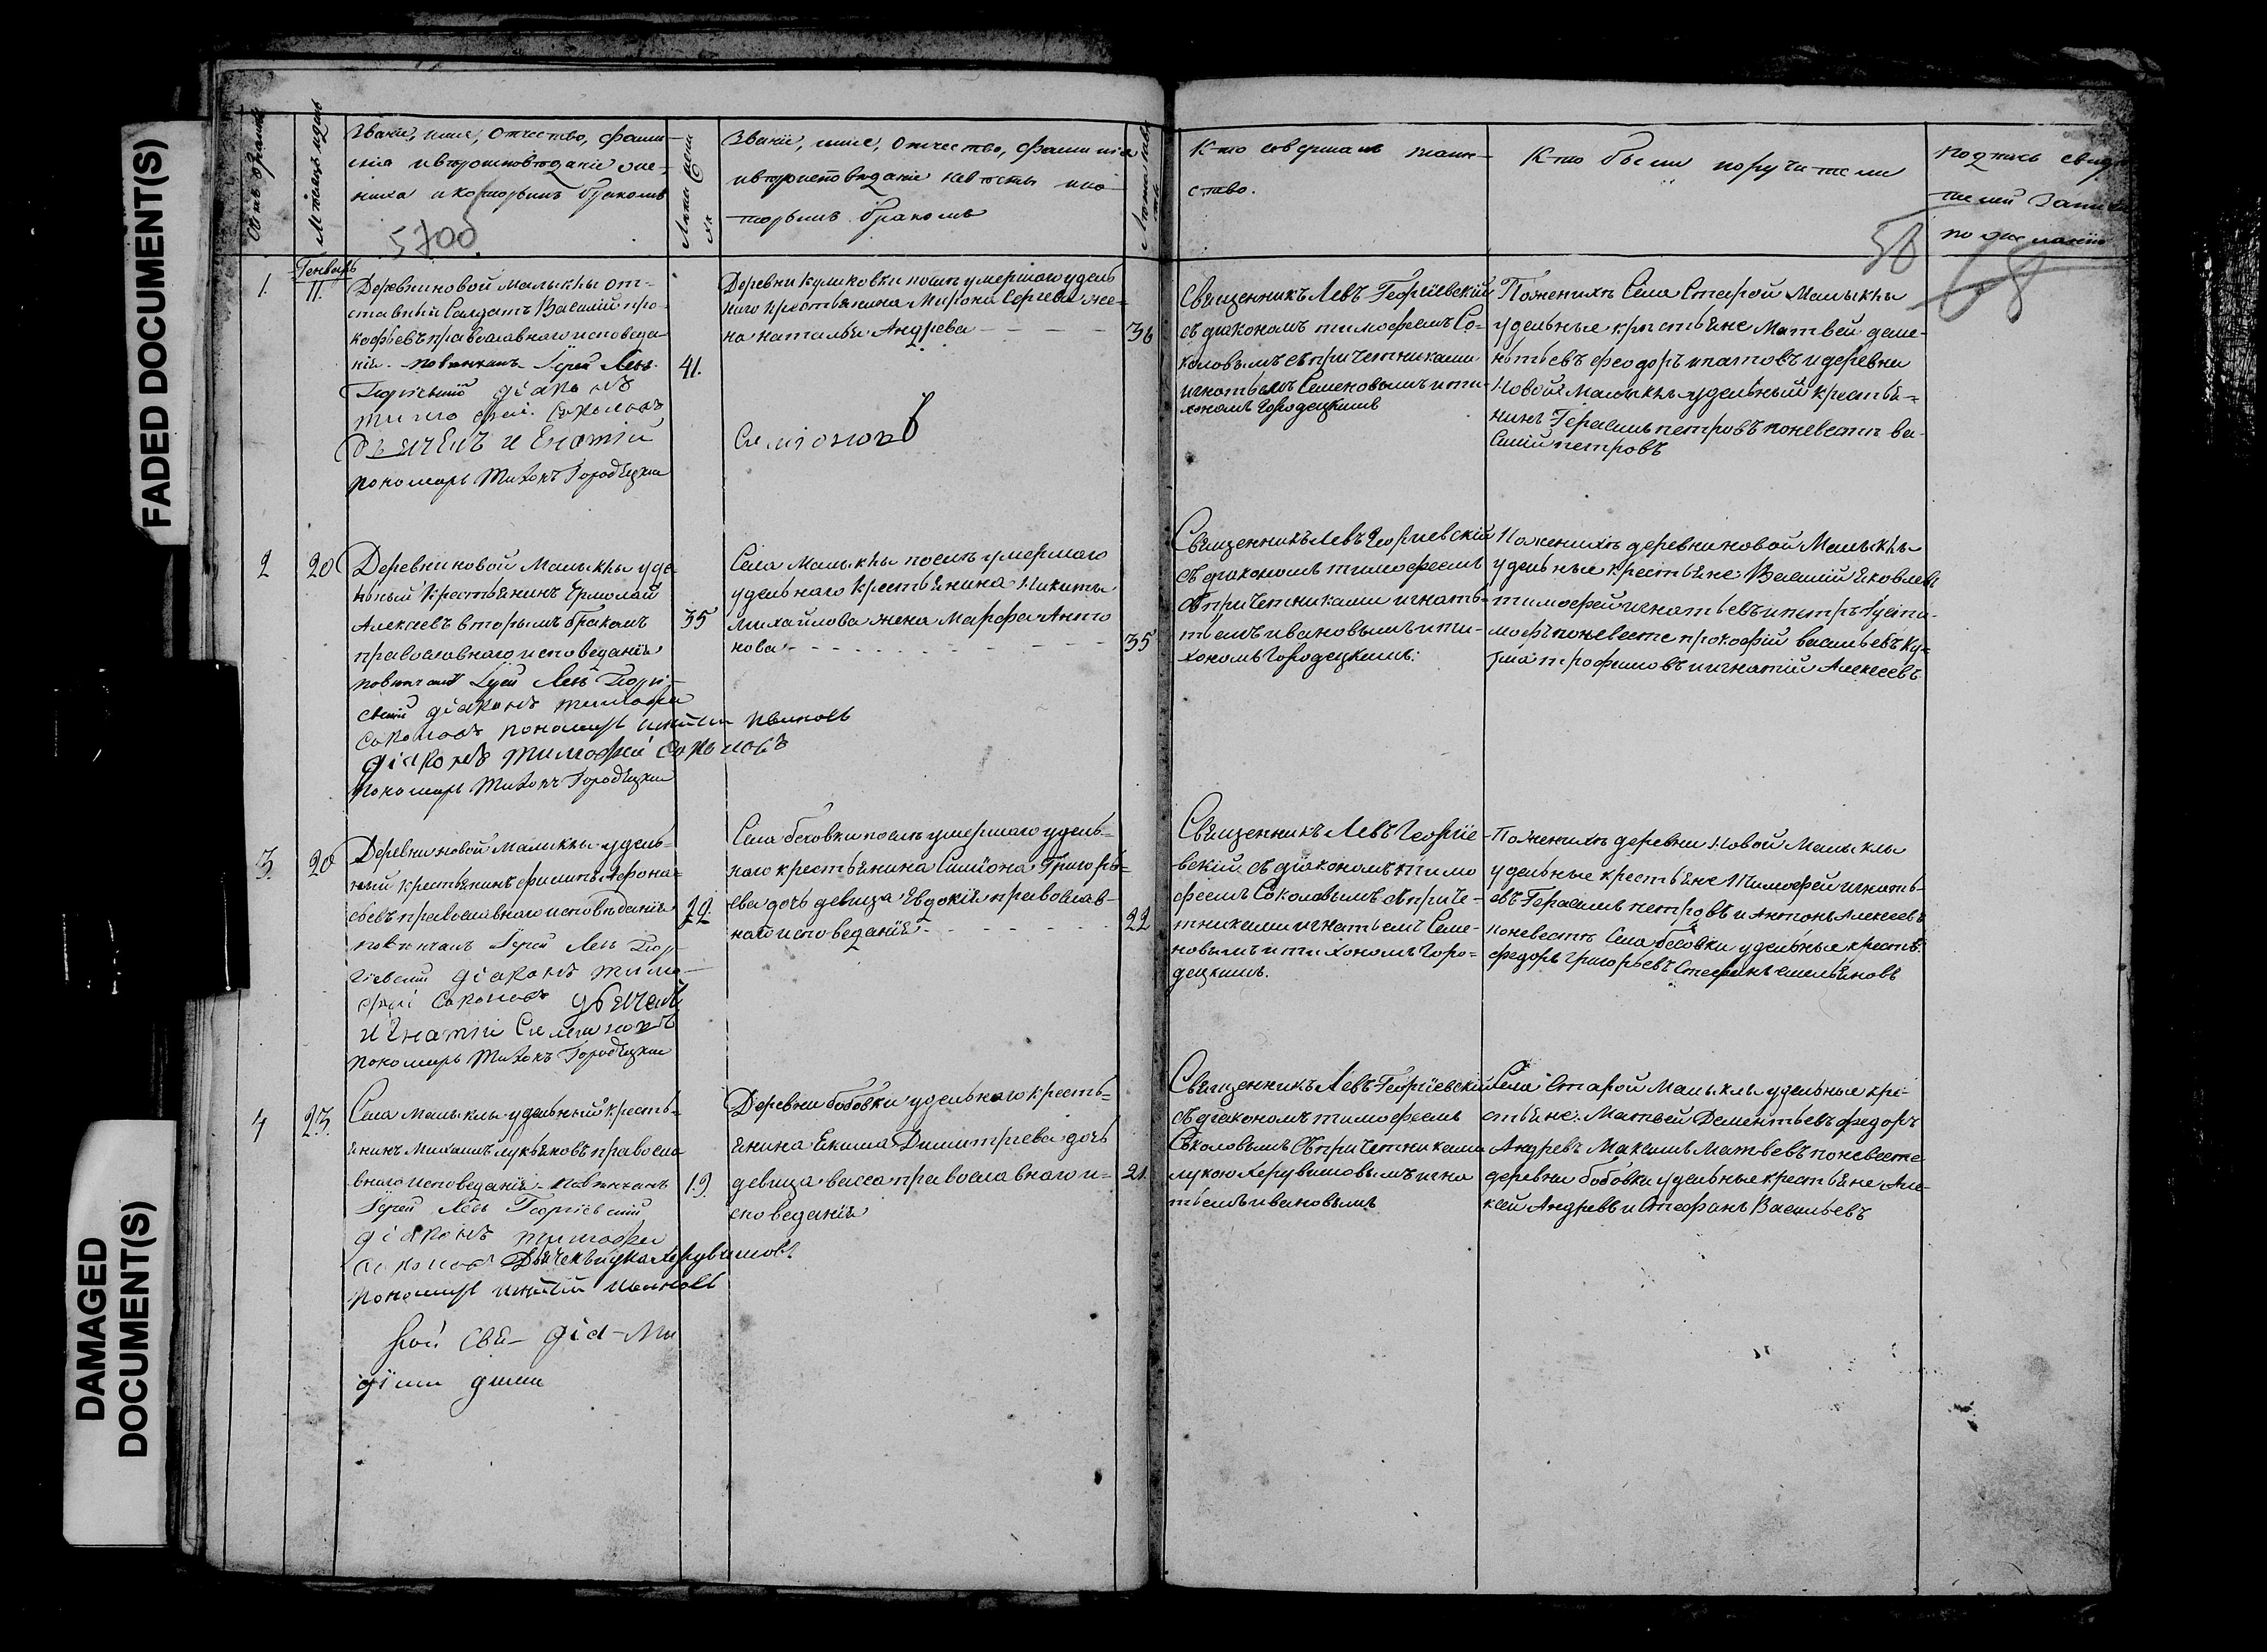 FADED DOCUMENT(S)
DAMAGED
DOCUMENT(S)
Мѣсяцъ и день
Званіе, имя, Отчество, фами-
лія и вѣроисповѣданіе же-
ниха и которымъ бракомъ
5700
Лѣта жени
ха
Званіе, имя, Отчество, фамилія
и вѣроисповѣданіе невѣсты и ко-
торымъ бракомъ
Кто совершалъ таин-
ство.
Кто были поручители
58
подпись свидѣ
телей записи
по желанію
68
1.
Генварь
11.
Деревни новой Малыклы от-
ставный Салдатъ Василій про-
кофьевъ православнаго исповеда-
нія. повѣнчалъ Іерей Левъ
Георгіевскій діаконъ
тимофей Соколовъ
дьячекъ Игнатій
пономарь Тихонъ Городецкій
41.
Деревни Куликовки послѣ умершаго удель
наго крестьянина Мирона Сергева же-
на наталья Андрева
Семіоновъ
36
Священникъ Левъ Георгіевскій
съ діакономъ тимофеемъ Со-
коловымъ съ причетниками
игнатьемъ Семеновымъ и ти-
хономъ Городецкимъ
По женихѣ Села Старой Малыклы
удельные крестьяне Матвей деме-
нтьевъ феодоръ ипатовъ и деревни
Новой Малыклы удельный крестья-
нинъ Герасимъ петровъ по невестѣ ва-
силій петровъ
2
20
Деревни новой Малыклы уде-
льный Крестьянинъ Ермолай
Алексеевъ вторымъ бракомъ
православнаго исповеданія
повѣнчалъ Іерей Левъ Георгі-
евскій діаконъ тимофей
Соколовъ пономарь Игнатій Ивановъ
діаконъ тимофей Соколовъ
Пономарь Тихонъ Городецкій
35
Села Малыклы послѣ умершаго
удельнаго Крестьянина Никиты
Михайлова жена Марфа Анто
нова
35
Священникъ Левъ Георгіевскій
съ діакономъ тимофеемъ
съ причетниками игнать-
темъ ивановымъ и ти-
хономъ Городецкимъ.
По женихѣ деревни новой Малыклы
удельные крестьяне Василій Яковлевъ
тимофей игнатьевъ и петръ Аусти-
мофъ по невесте прокофій васильевъ ку-
зма трофимовъ и игнатій Алексеевъ
3.
20
Деревни новой Малыклы удель-
ный крестьянинъ филипъ Афона-
сьевъ православнаго исповѣданія
повѣнчалъ Іерей Левъ Геор-
гіевскій діаконъ тимо-
фей Соколовъ дьячекъ
Игнатіи Семионовъ
пономарь Тихонъ Городецкій
22.
Села бесовки послѣ умершаго удель-
наго крестьянина Симіона Григорь-
ева дочь девица Евдокія православ-
наго исповеданія
22
Священникъ Левъ Георгіе-
вскій съ діакономъ тимо
феемъ Соколовымъ съ приче-
тниками игнатьемъ Семе-
новымъ и тихономъ Горо-
децкимъ.
По женихѣ деревни Новой Малыклы
удельные крестьяне Тимофей игнать-
евъ Герасимъ петровъ и Антонъ Алексеевъ
по невестѣ Села бесовки удельные крестья.
федоръ григорьевъ Стефанъ емельяновъ
4
23.
Села Малыклы удельный кресть-
янинъ Михаилъ лукьяновъ правосла
внаго исповеданія. повѣнчалъ
Іерей Левъ Георгіевскій
діаконъ тимофей
Соколовъ Дьячекъ Лука Херувимовъ
пономарь Игнатій Ивановъ
19.
Деревни бобовки удельнаго кресть-
янина Екима Димитрева дочь
девица васса православнаго и-
споведанія
21.
Священникъ Левъ Георгіевскій
съ діакономъ тимофеемъ
Соколовымъ Съ причетниками
лукою Херувимовымъ и игна
тьемъ ивановымъ
Села Старой Малыклы удельные кре-
стьяне: Матвей Дементьевъ федоръ
Андревъ Максимъ Матвевъ по невесте
деревни бобовки удельные крестьяне Але-
ксей Андревъ и Стефанъ Васильевъ